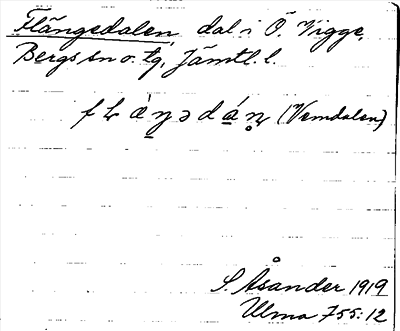 Flängedalen dal i Ö. Vigge,
Bergs sn o. tg, Jämtl. l.
(Vemdalen)
S. Åsander 1919
Ulma 755:12